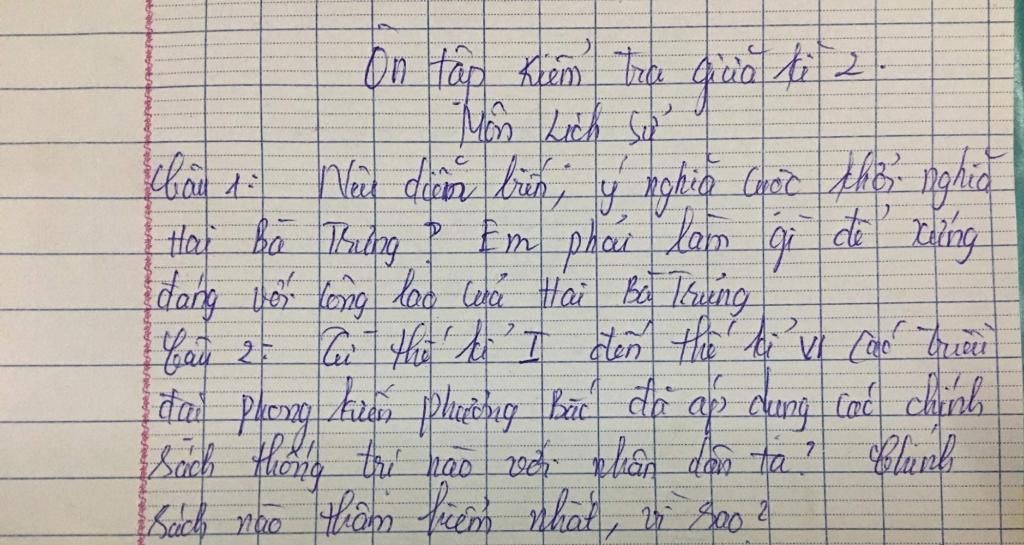 Ôn tập kiểm tra giữa kì 2.
Môn Lịch Sử
Câu 1: Nêu diễn biến, ý nghĩa cuộc khởi nghĩa
Hai Bà Trưng? Em phải làm gì để xứng
đáng với công lao của Hai Bà Trưng
Câu 2: Từ thế kỉ I đến thế kỉ VI các triều
đại phong kiến phương Bắc đã áp dụng các chính
sách thống trị nào với nhân dân ta? Chính
sách nào thâm hiểm nhất, vì sao?